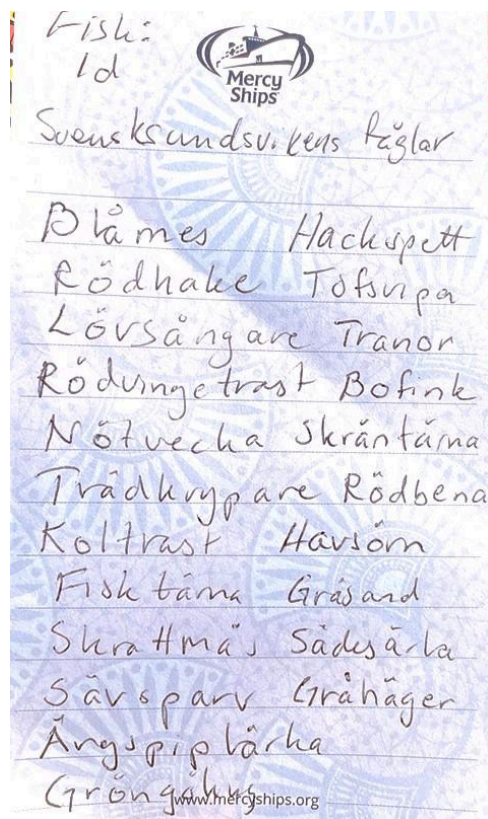 Fisk:
Id
Mercy
Ships
Svensksundsvikens Fåglar
Blåmes Hackspett
Rödhake Tofsvipa
Lövsångare Tranor
Rödvingetrast Bofink
Nötvecka Skräntärna
Trädkrypare Rödbena
Koltrast Havsörn
Fisktärna Gräsand
Skrattmås Sädesärla
Sävsparv Gråhäger
Ängspiplärka
Gröngöling
www.mercyships.org